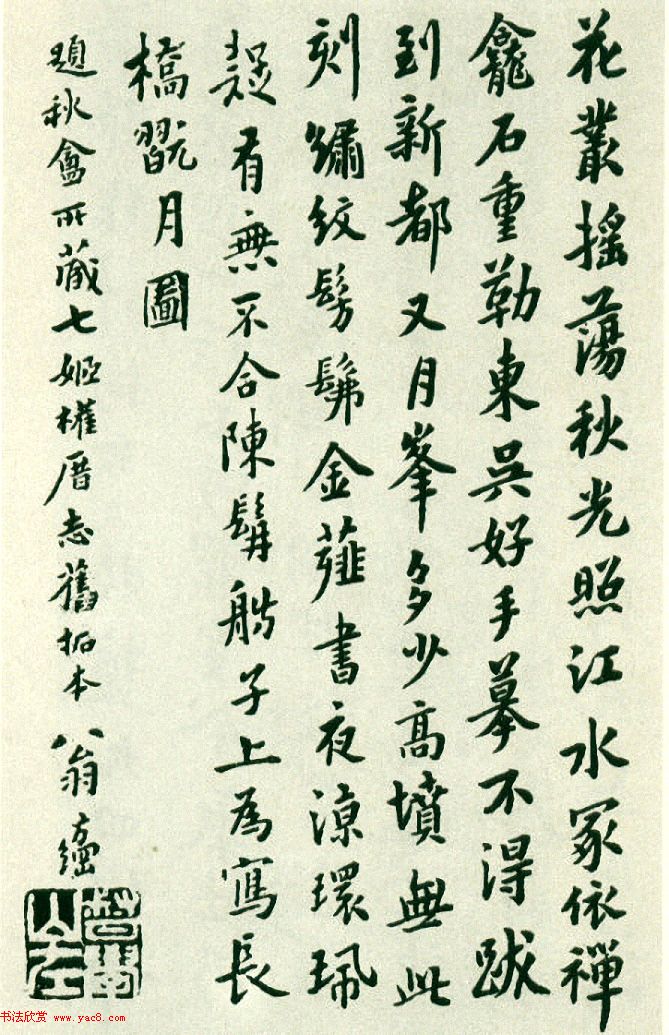 花叢摇蕩秋光照江水冢依禪
龕石重勒東吳好手摹不得跋
到新都又月峯多少高墳無此
刻繡紋髣髴金薤書夜涼環珮
疑有無不合陳髯舫子上為寫長
橋翫月圖
題秋盦所藏七姬權厝志舊拓本 翁方綱
书法欣赏 www.yac8.com